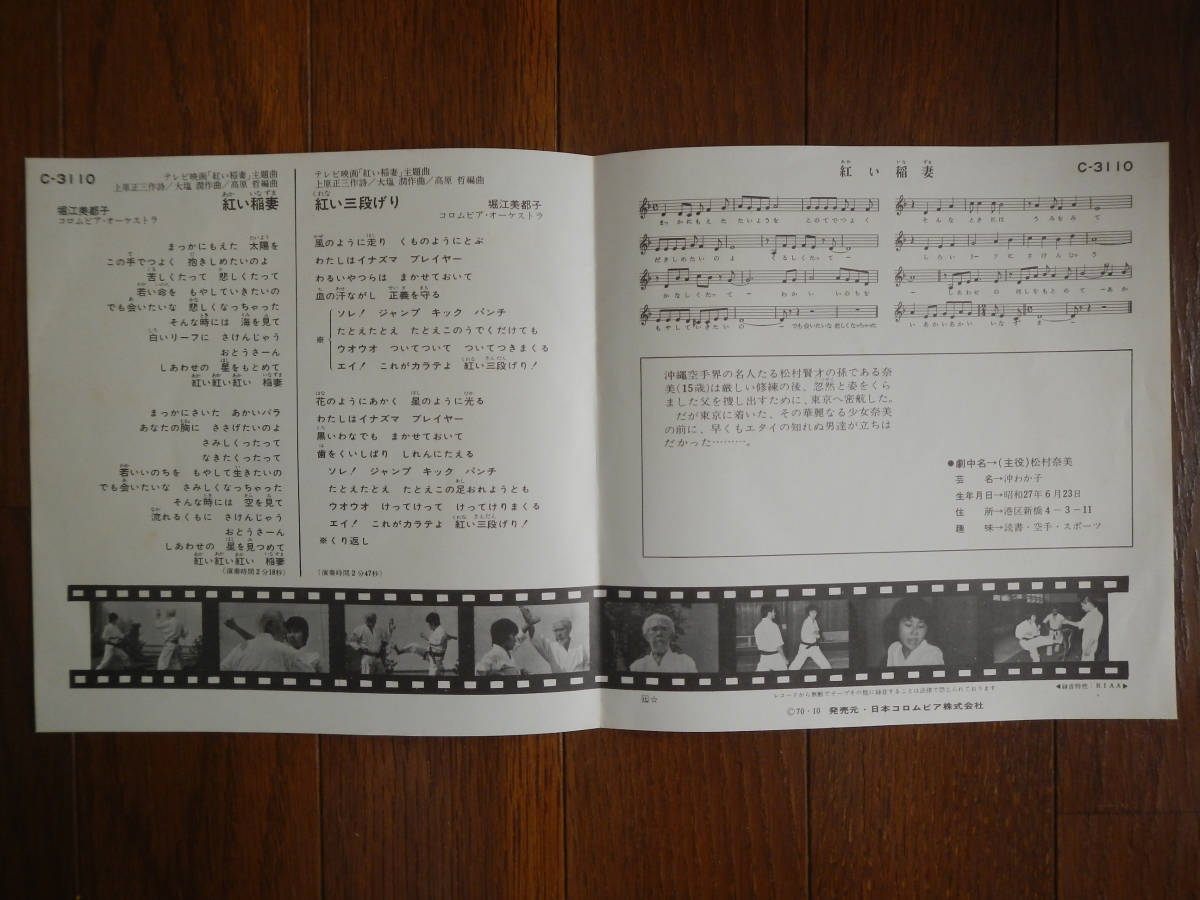 C-3110
テレビ映画「紅い稲妻」主題曲
上原正三作詩／大塩 潤作曲／高原 哲編曲
紅い稲妻
堀江美都子
コロムビア・オーケストラ
まっかにもえた 太陽を
この手でつよく 抱きしめたいのよ
苦しくたって 悲しくたって
若い命を もやしていきたいの
でも会いたいな 悲しくなっちゃった
そんな時には 海を見て
白いリーフに さけんじゃう
おとうさーん
しあわせの 星をもとめて
紅い紅い紅い 稲妻
まっかにさいた あかいバラ
あなたの胸に ささげたいのよ
さみしくったって
なきたくったって
若いいのちを もやして生きたいの
でも会いたいな さみしくなっちゃった
そんな時には 空を見て
流れるくもに さけんじゃう
おとうさーん
しあわせの 星を見つめて
紅い紅い紅い 稲妻
（演奏時間2分18秒）
テレビ映画「紅い稲妻」主題曲
上原正三作詩／大塩 潤作曲／高原 哲編曲
紅い三段げり
堀江美都子
コロムビア・オーケストラ
風のように走り くものようにとぶ
わたしはイナズマ プレイヤー
わるいやつらは まかせておいて
血の汗ながし 正義を守る
ソレ！ ジャンプ キック パンチ
たとえたとえ たとえこのうでくだけても
※
ウオウオ ついてついて ついてつきまくる
エイ！ これがカラテよ 紅い三段げり！
花のようにあかく 星のように光る
わたしはイナズマ プレイヤー
黒いわなでも まかせておいて
歯をくいしばり しれんにたえる
ソレ！ ジャンプ キック パンチ
たとえたとえ たとえこの足おれようとも
ウオウオ けってけって けってけりまくる
エイ！ これがカラテよ 紅い三段げり！
※くり返し
（演奏時間2分47秒）
紅い稲妻
C-3110
まっかにもえた たいようを このてでつよく
だきしめたいのよ くるしくたって ー
かなしくたって ー わかい いのちを
もやしていきたいの ー でも会いたいな 悲しくなっちゃった
そんな ときには うみをみて
しろいリーフに さけんじゃう
ー しあわせの ほしをもとめて ー あか
いあかいあかい いなずま ー
沖縄空手界の名人たる松村賢才の孫である奈
美（15歳）は厳しい修練の後、忽然と姿をくら
ました父を捜し出すために、東京へ密航した。
だが東京に着いた、その華麗なる少女奈美
の前に、早くもエタイの知れぬ男達が立ちは
だかった………。
●劇中名→（主役）松村奈美
芸 名→沖わか子
生年月日→昭和27年6月23日
住 所→港区新橋4－3－11
趣 味→読書・空手・スポーツ
レコードから無断でテープその他に録音することは法律で禁じられております
◀録音特性：RIAA▶
Ⓒ70・10 発売元・日本コロムビア株式会社